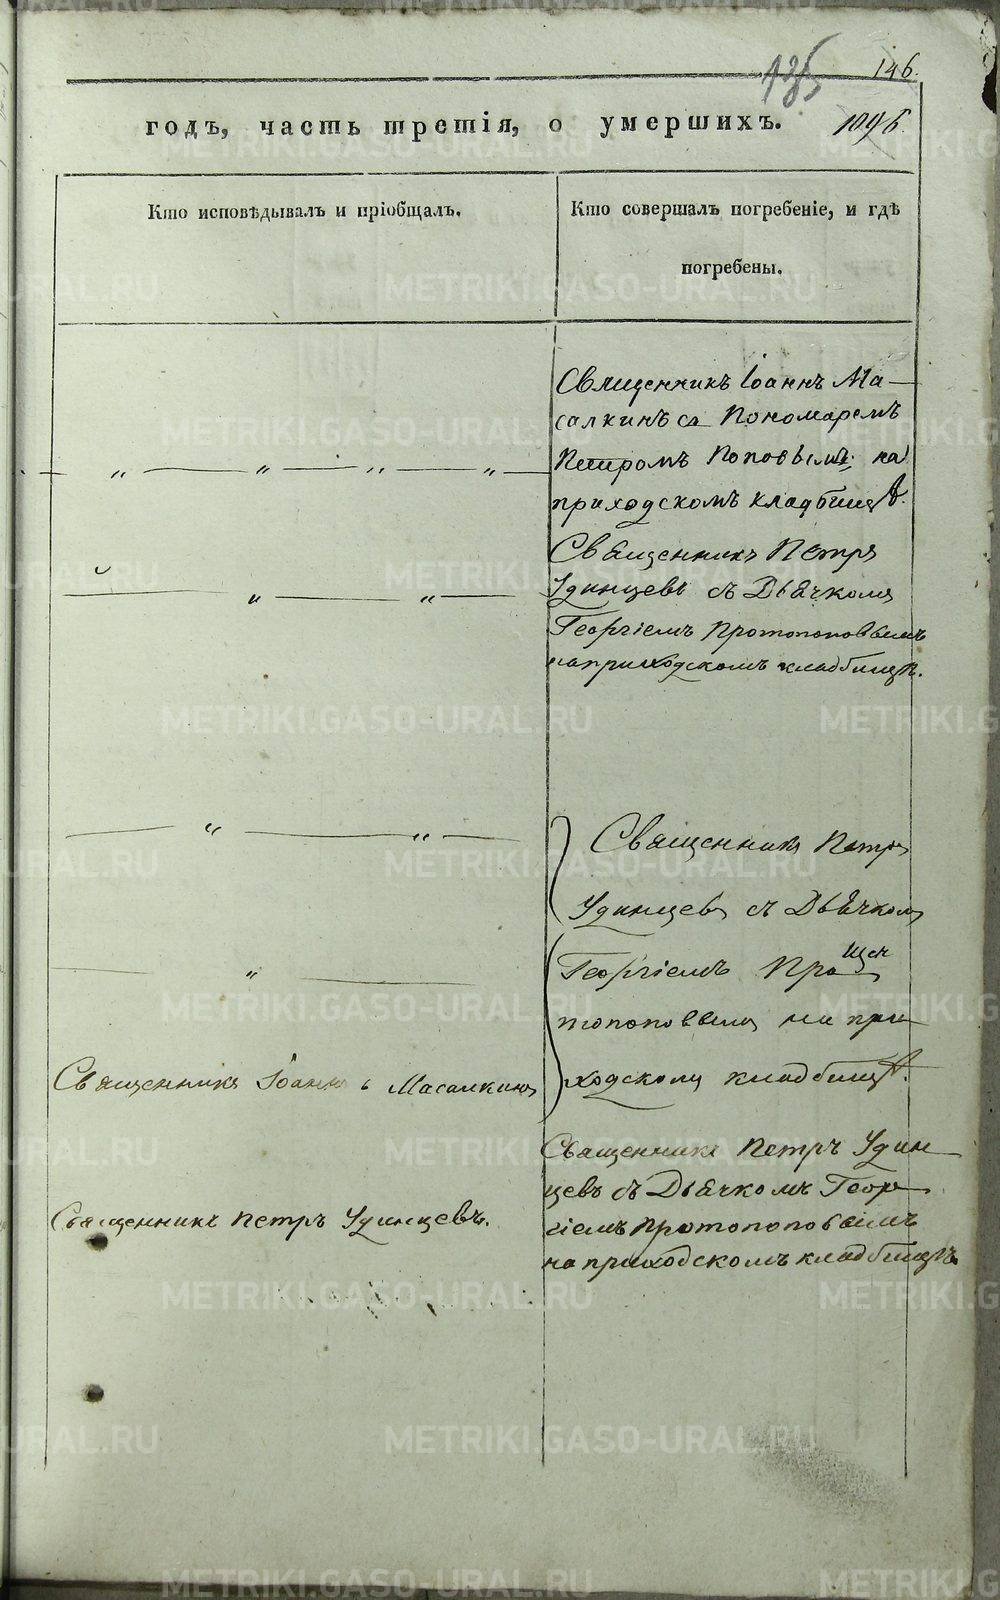 146.
годъ, часть третія, о умершихъ.
1096.
Кто исповѣдывалъ и пріобщалъ.
Кто совершалъ погребеніе, и гдѣ
погребены.
Священникъ Іоаннъ Ма-
салкинъ съ Пономаремъ
Петромъ Поповымъ, на
приходскомъ кладбищѣ.
Священникъ Петръ
Удинцевъ съ Дьячкомъ
Георгіемъ Протопоповымъ
на приходскомъ кладбищѣ.
Священникъ Петръ
Удинцевъ съ Дьячкомъ
Георгіемъ Про
топоповымъ на при
ходскомъ кладбищѣ.
Священникъ Іоаннъ Масалкинъ
Священникъ Петръ Удин
цевъ съ Дьячкомъ Геор
гіемъ Протопоповымъ
на приходскомъ кладбищѣ.
Священникъ Петръ Удинцевъ.
METRIKI.GASO-URAL.RU